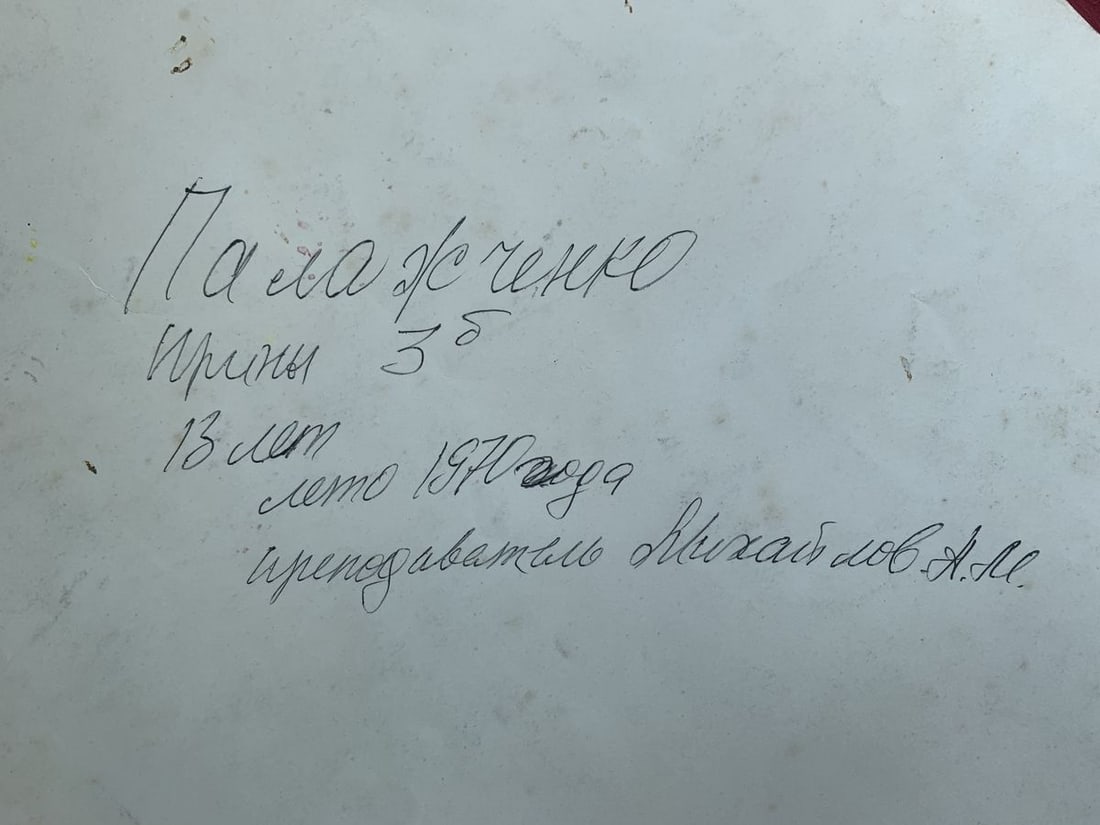 Палажченко
Ирины 3б
13 лет
лето 1970 года
преподаватель Михайлов А.М.